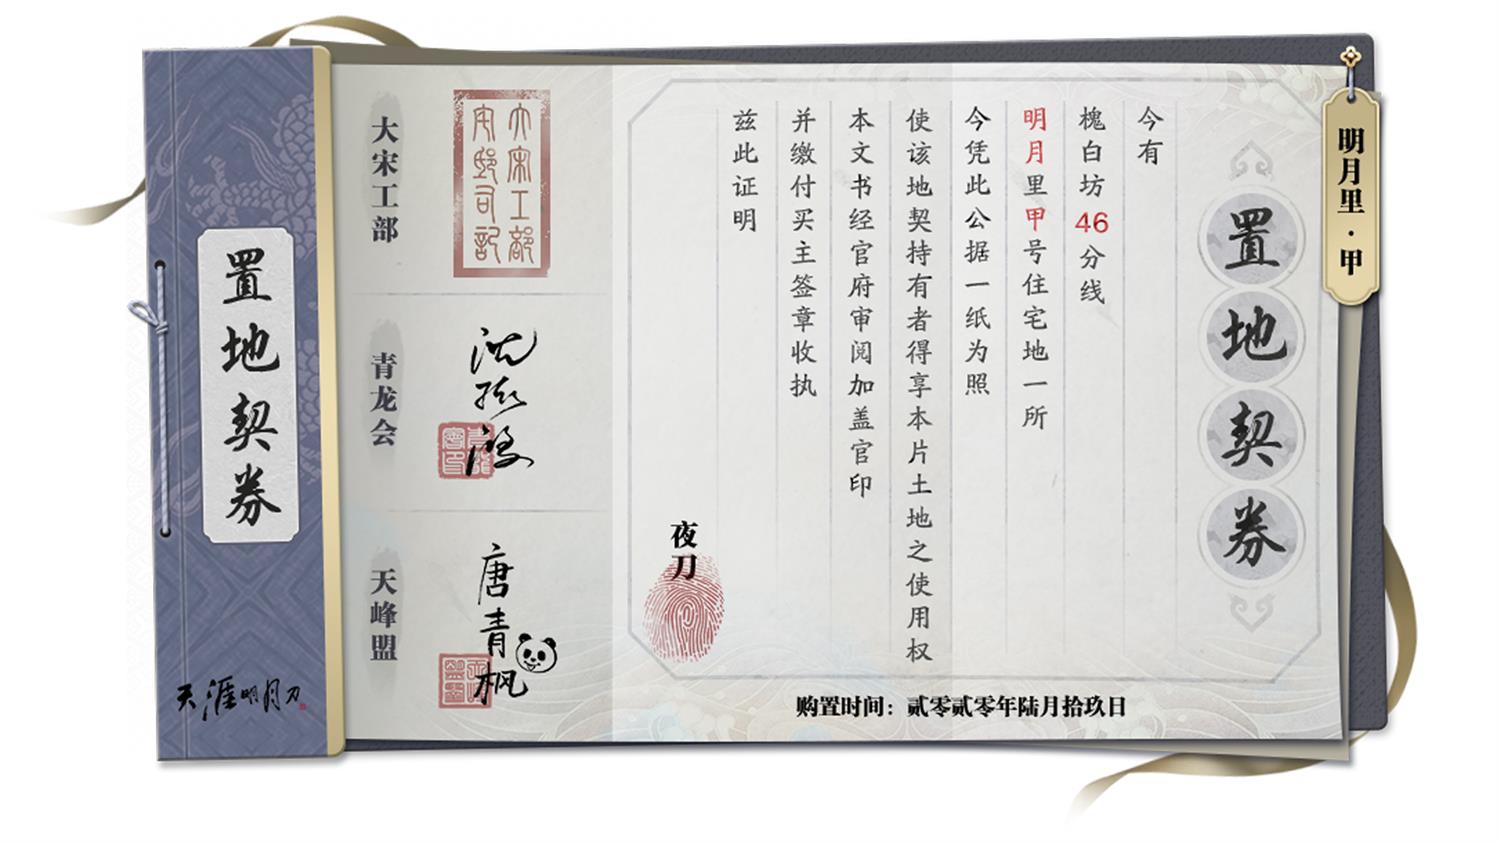 置地契券
天涯明月刀
明月里·甲
置地契券
今有
槐白坊46分线
明月里甲号住宅地一所
今凭此公据一纸为照
使该地契持有者得享本片土地之使用权
本文书经官府审阅加盖官印
并缴付买主签章收执
兹此证明
夜刀
购置时间：贰零贰零年陆月拾玖日
大宋工部
青龙会
沈孤鸿
天峰盟
唐青枫